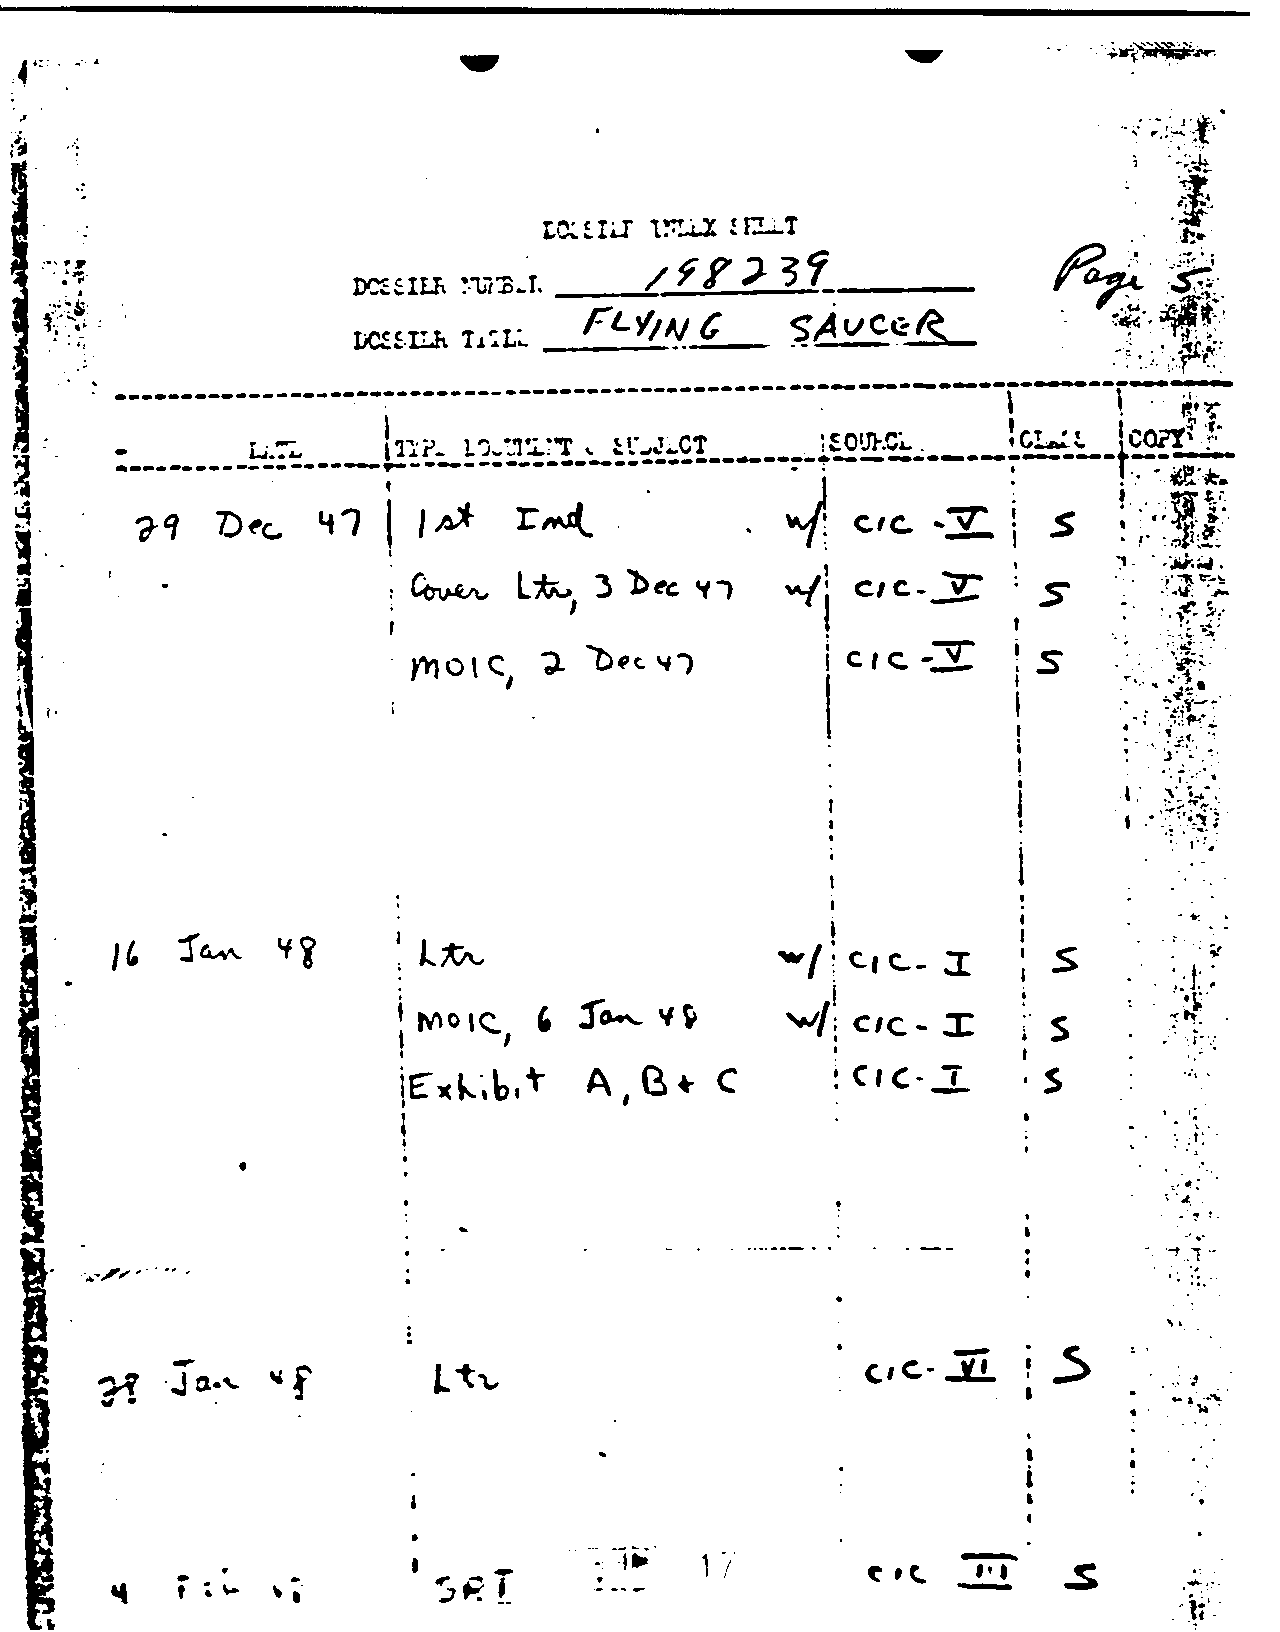 DOSSIER INDEX SHEET
DOSSIER NUMBER 198239
Page 5
DOSSIER TITLE FLYING SAUCER
DATE TYPE DOCUMENT & SUBJECT SOURCE CLASS COPY
29 Dec 47 1st Ind w/ CIC-V S
Cover Ltr, 3 Dec 47 w/ CIC-V S
MOIC, 2 Dec 47 CIC-V S
16 Jan 48 Ltr w/ CIC-I S
MOIC, 6 Jan 48 w/ CIC-I S
Exhibit A, B + C CIC-I S
28 Jan 48 Ltr CIC-VI S
4 Feb 48 17 CIC III S